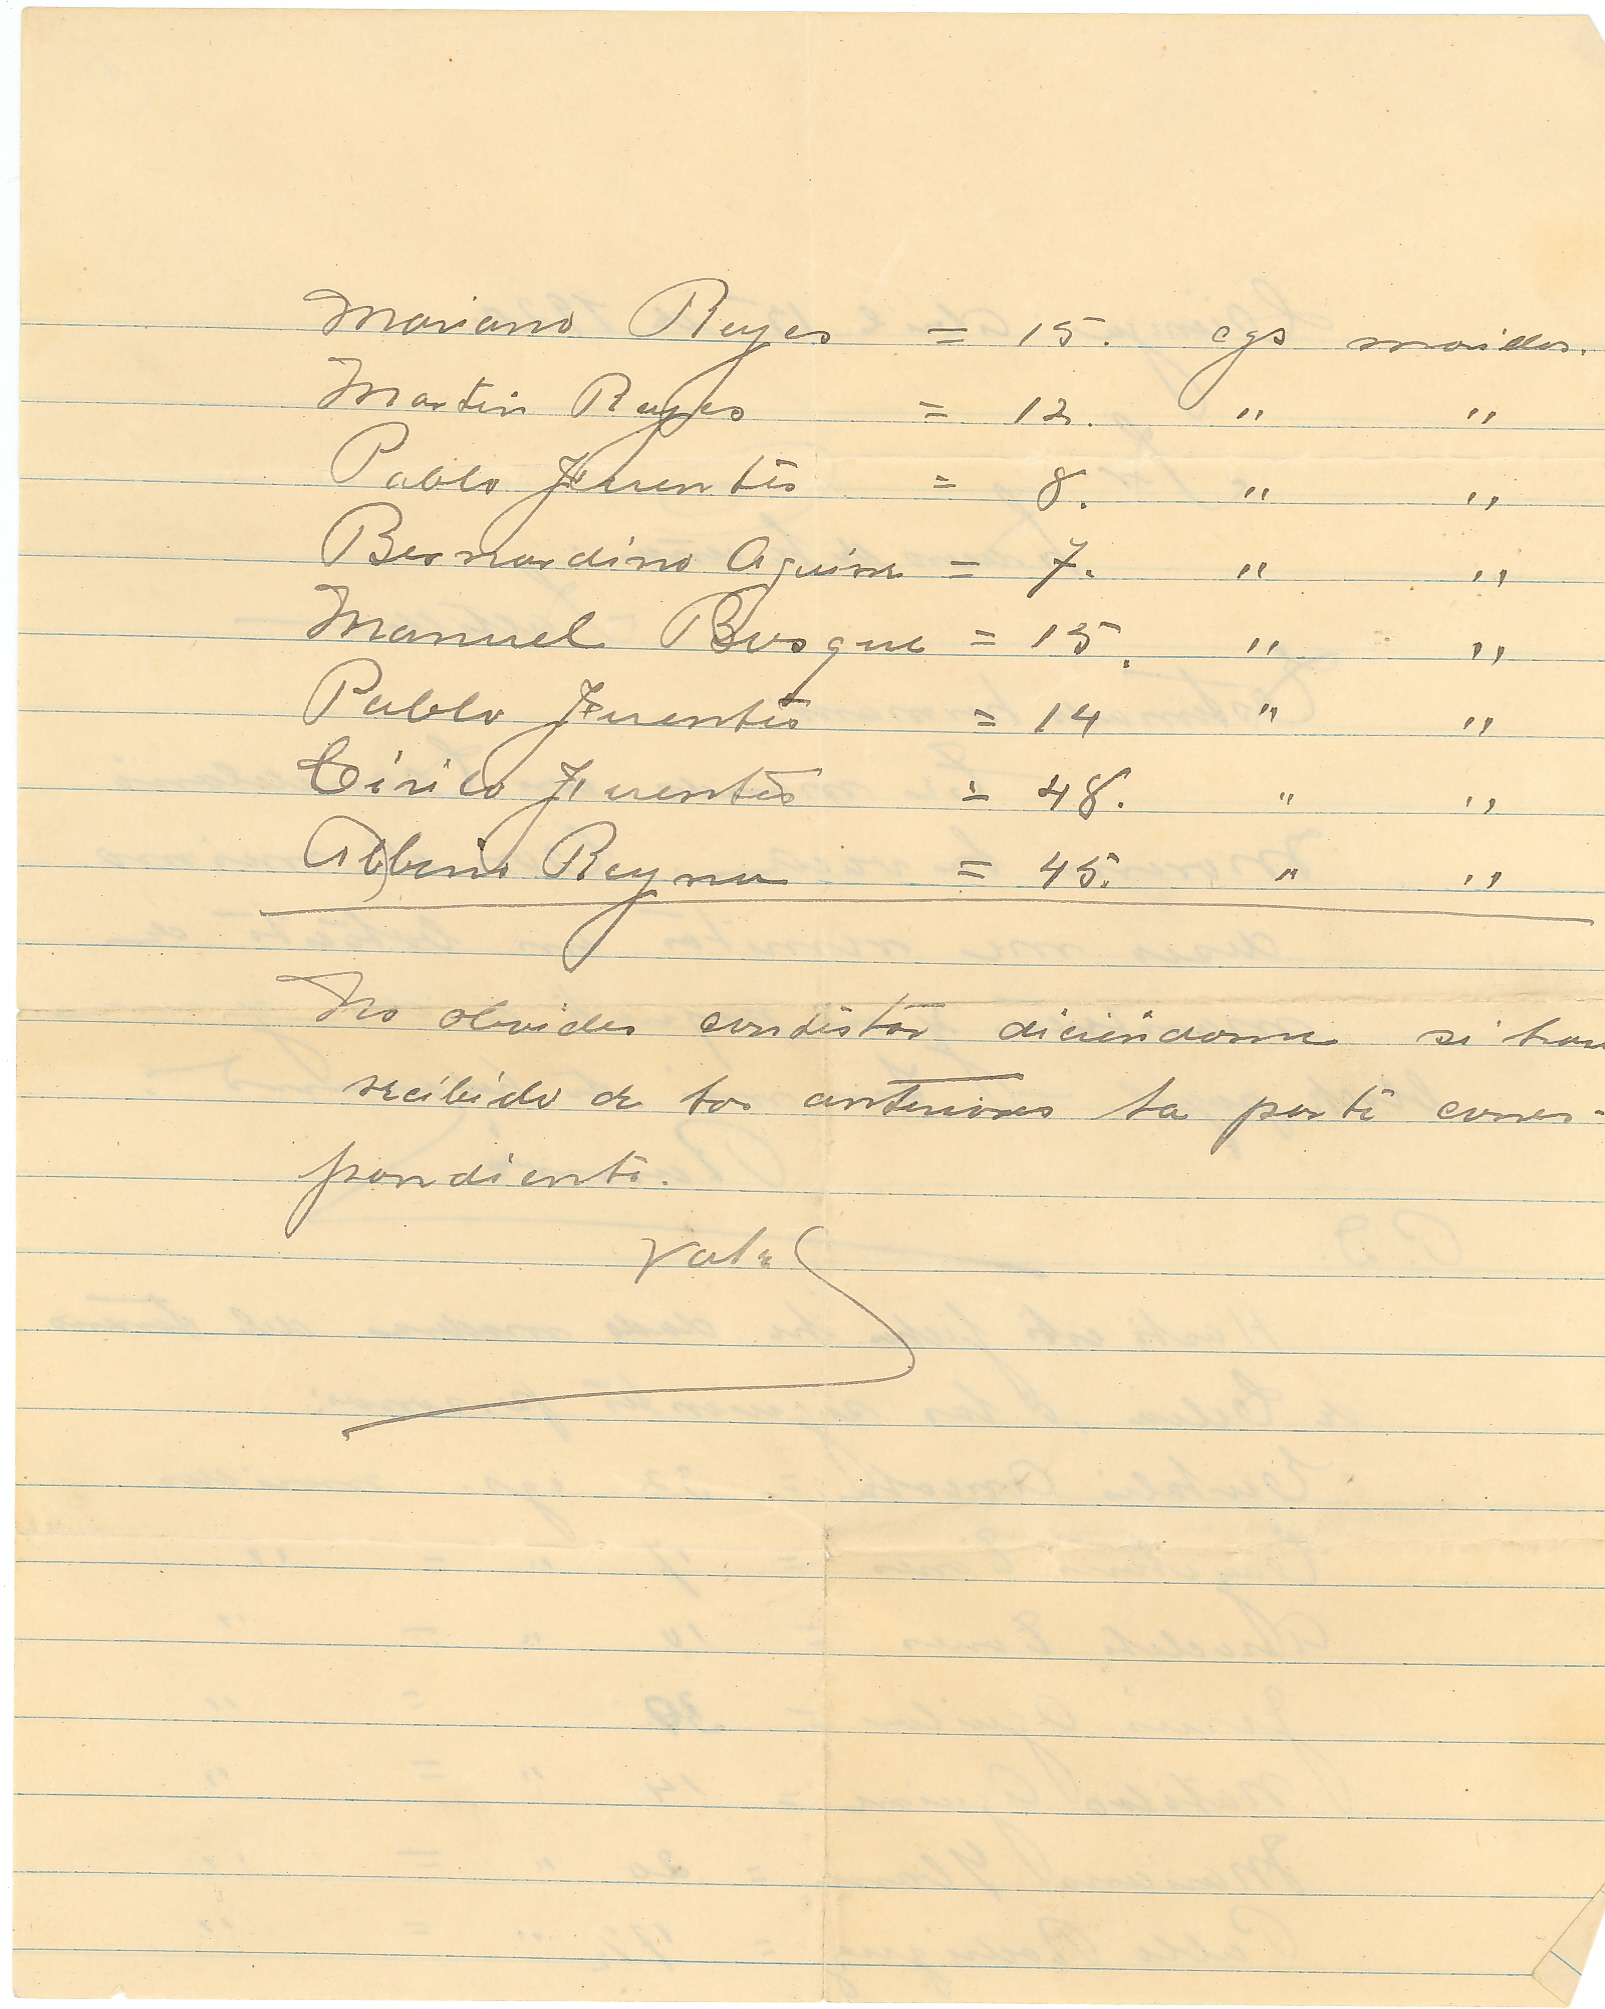 Mariano Reyes = 15. cgs maiden.
Martin Reyes = 12. " "
Pablo Fuentes = 8. " "
Bernardino Aguirre = 7. " "
Manuel Bosque = 15. " "
Pablo Fuentes = 14 " "
Cirilo Fuentes = 48. " "
Albino Reyna = 45. " "
No olvides contestar diciendome si has
recibido de los anteriores la parte corres-
pondiente.
Vale